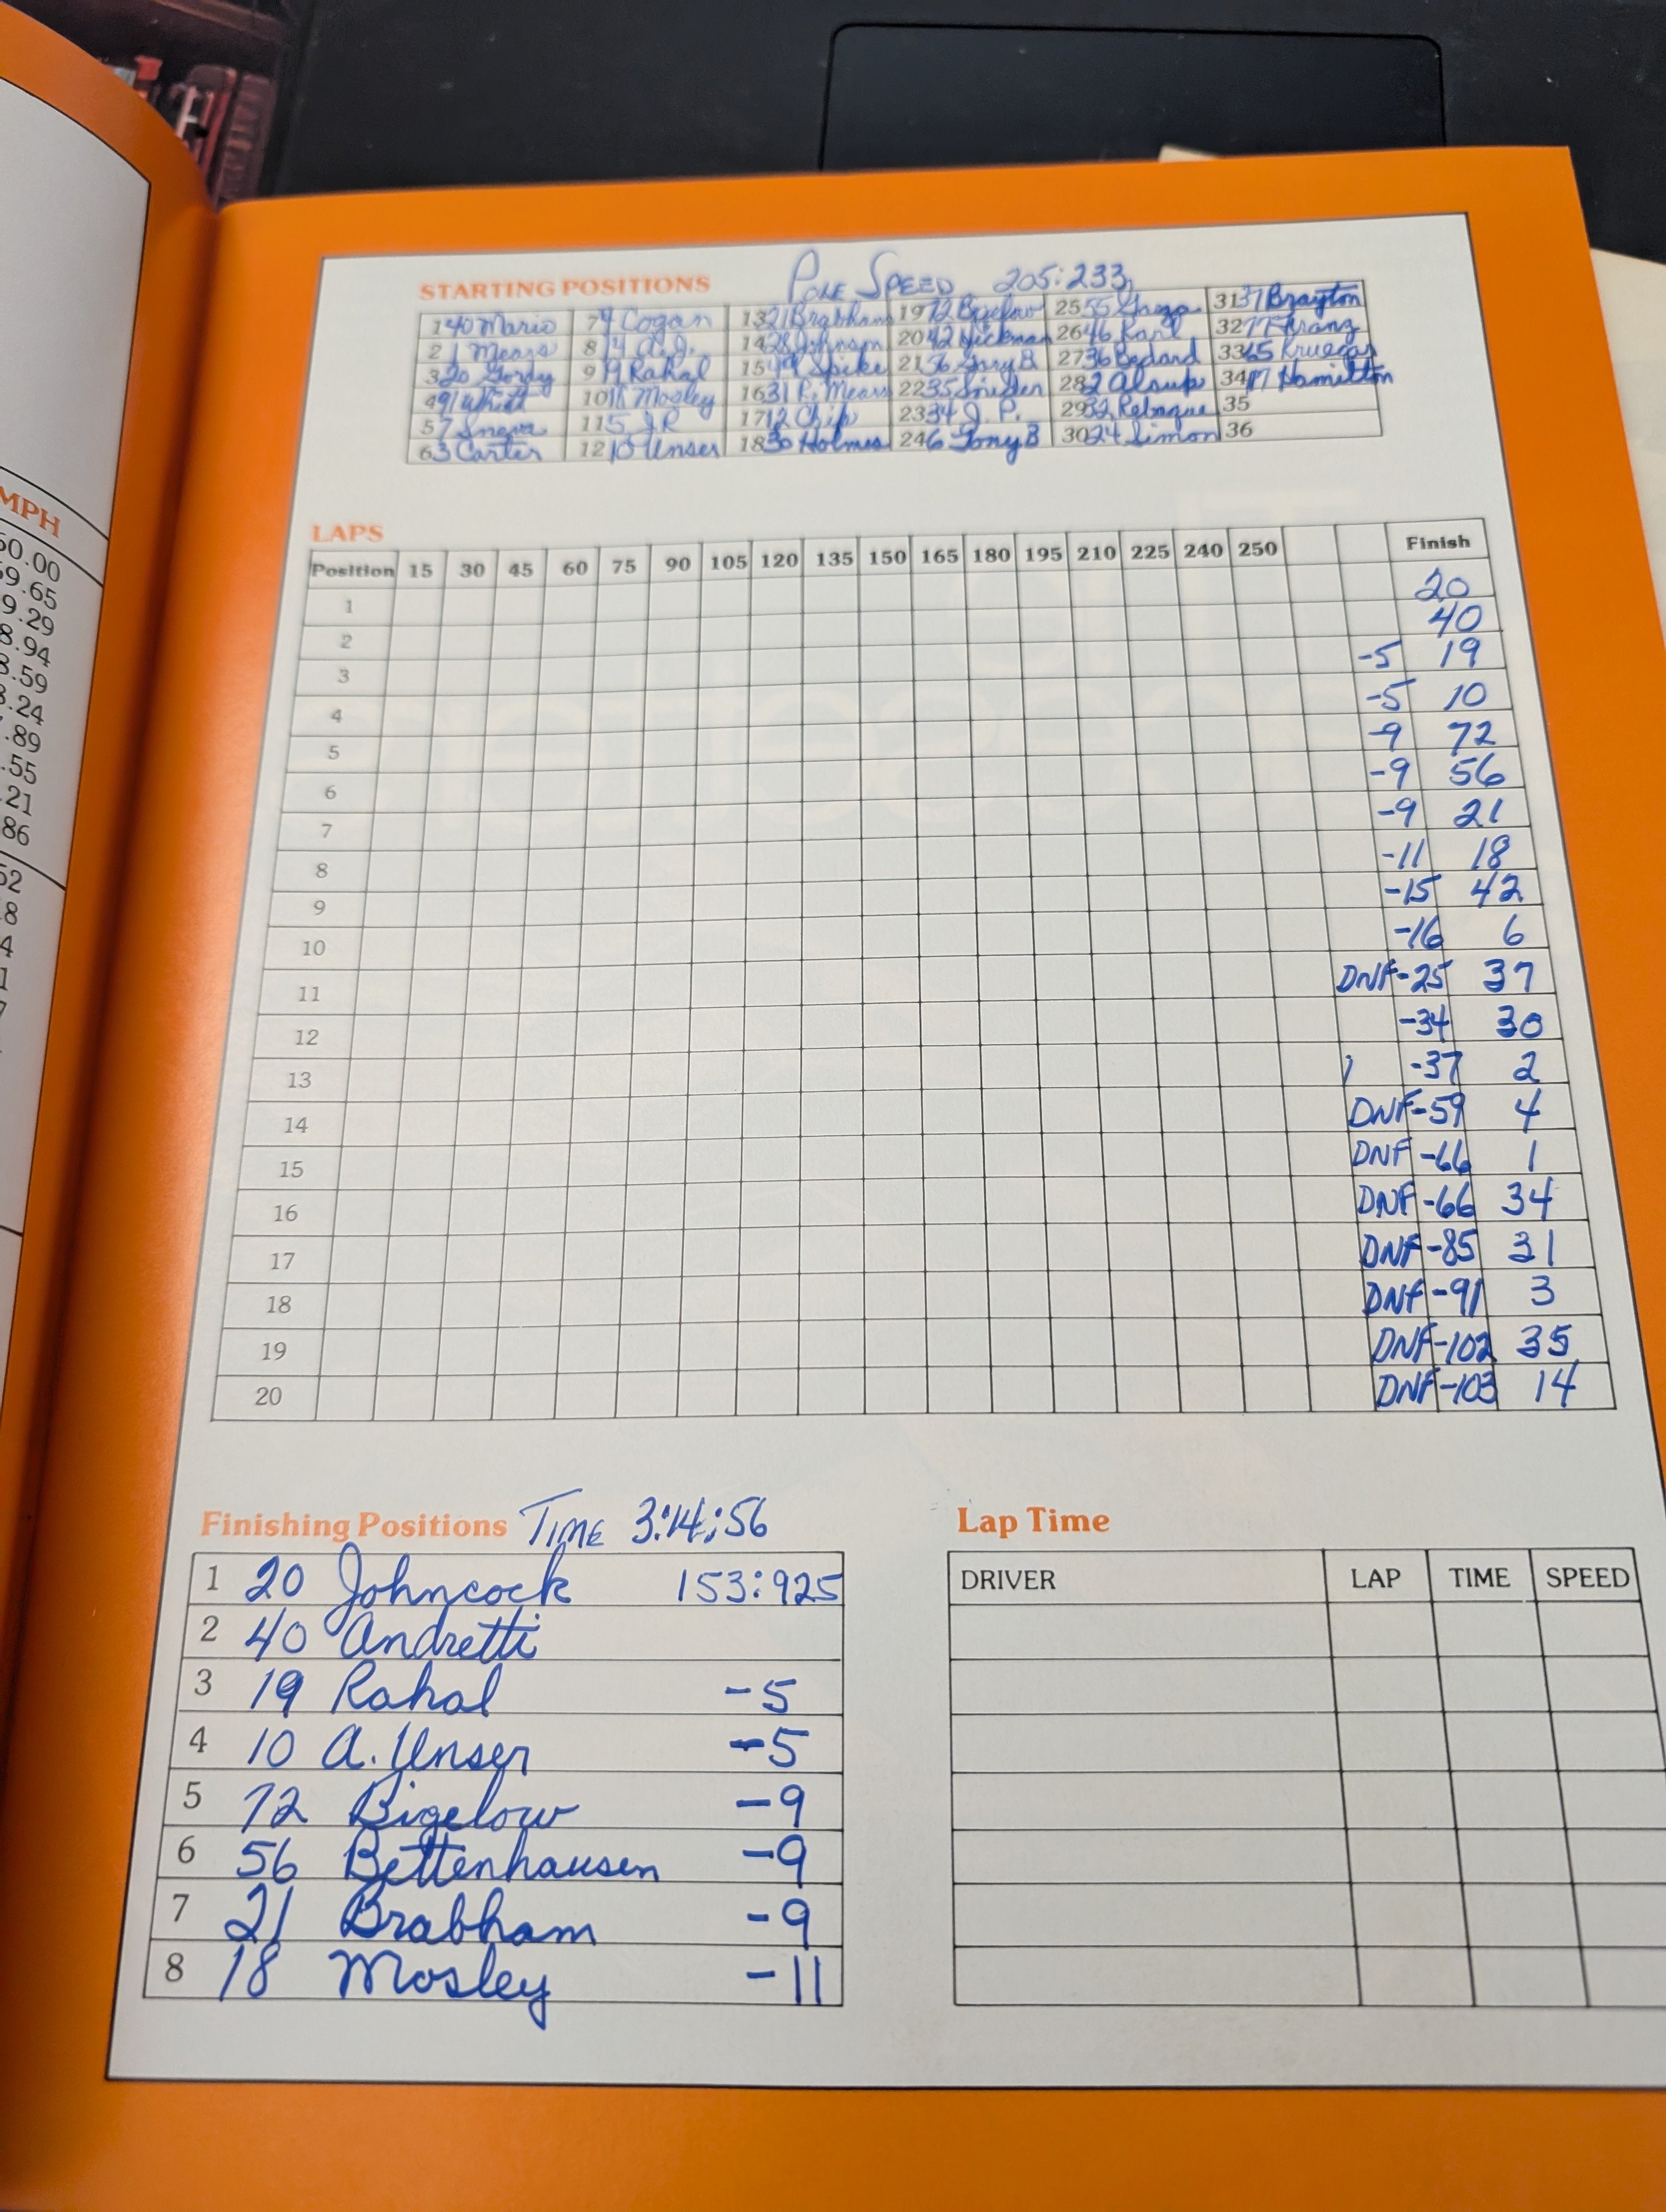 MPH
50.00
59.65
9.29
8.94
8.59
8.24
.89
.55
.21
86
52
8
4
1
7
STARTING POSITIONS POLE SPEED 205:233
1 40 Mario 7 4 Cogan 13 21 Brabham 19 72 Bigelow 25 55 31 37 Brayton
2 1 Mears 8 14 A.J. 14 28 Johnson 20 42 Hickman 26 46 Karl 32
3 20 Gordy 9 19 Rahal 15 49 Spike 21 56 Gary B 27 36 Bedard 33 65
4 91 Whitt 10 18 Mosley 16 31 R. Mears 22 35 Sneider 28 2 Alsup 34 17 Hamilton
5 7 Sneva 11 5 J.R 17 12 Chip 23 34 J. P. 29 32 Rebaque 35
6 3 Carter 12 10 Unser 18 30 Holmes 24 6 Tony B 30 24 Simon 36
LAPS
Position 15 30 45 60 75 90 105 120 135 150 165 180 195 210 225 240 250 Finish
1 20
2 40
3 -5 19
4 -5 10
5 -9 72
6 -9 56
7 -9 21
8 -11 18
9 -15 42
10 -16 6
11 DNF-25 37
12 -34 30
13 -37 2
14 DNF-59 4
15 DNF-66 1
16 DNF-66 34
17 DNF-85 31
18 DNF-91 3
19 DNF-102 35
20 DNF-103 14
Finishing Positions TIME 3:14:56
1 20 Johncock 153:925
2 40 Andretti
3 19 Rahal -5
4 10 A. Unser -5
5 72 Bigelow -9
6 56 Bettenhausen -9
7 21 Brabham -9
8 18 Mosley -11
Lap Time
DRIVER LAP TIME SPEED